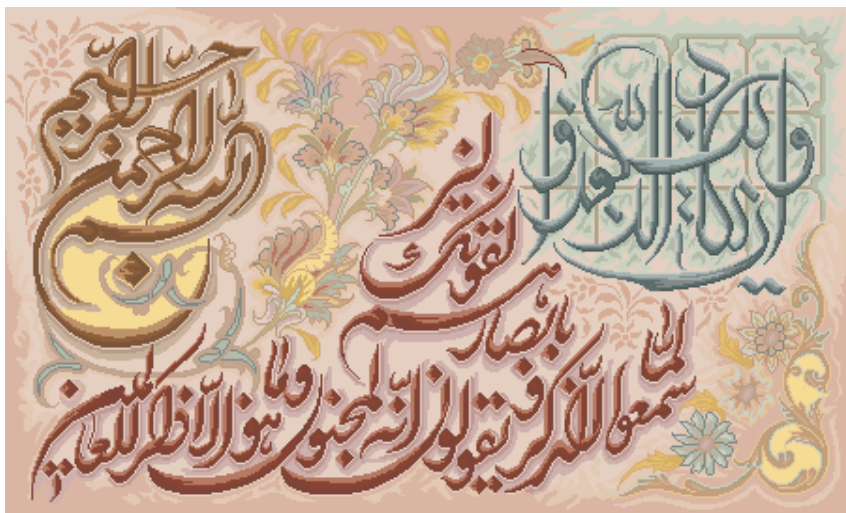 بسم الله الرحمن الرحیم
وان یکاد الذین کفروا
لیزلقونک
بابصارهم
لما سمعوا الذکر و یقولون انه لمجنون وما هو الا ذکر للعالمین